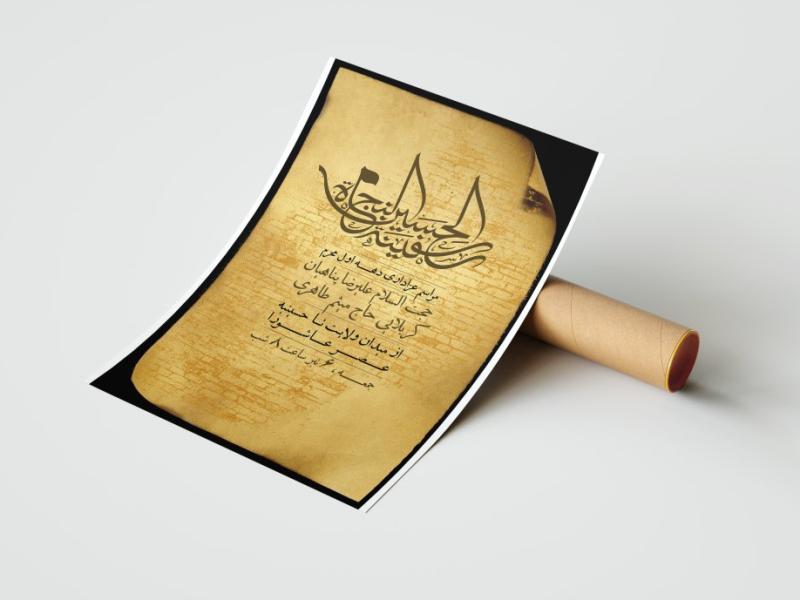 الحسین سفینة النجاة
مراسم عزاداری دهه اول محرم
حجت السلام علیرضا پناهیان
کربلایی حاج میثم طاهری
از میدان ولایت تا حسینیه
عصر عاشورا
جمعه ، ۶ تیر ساعت ۸ شب